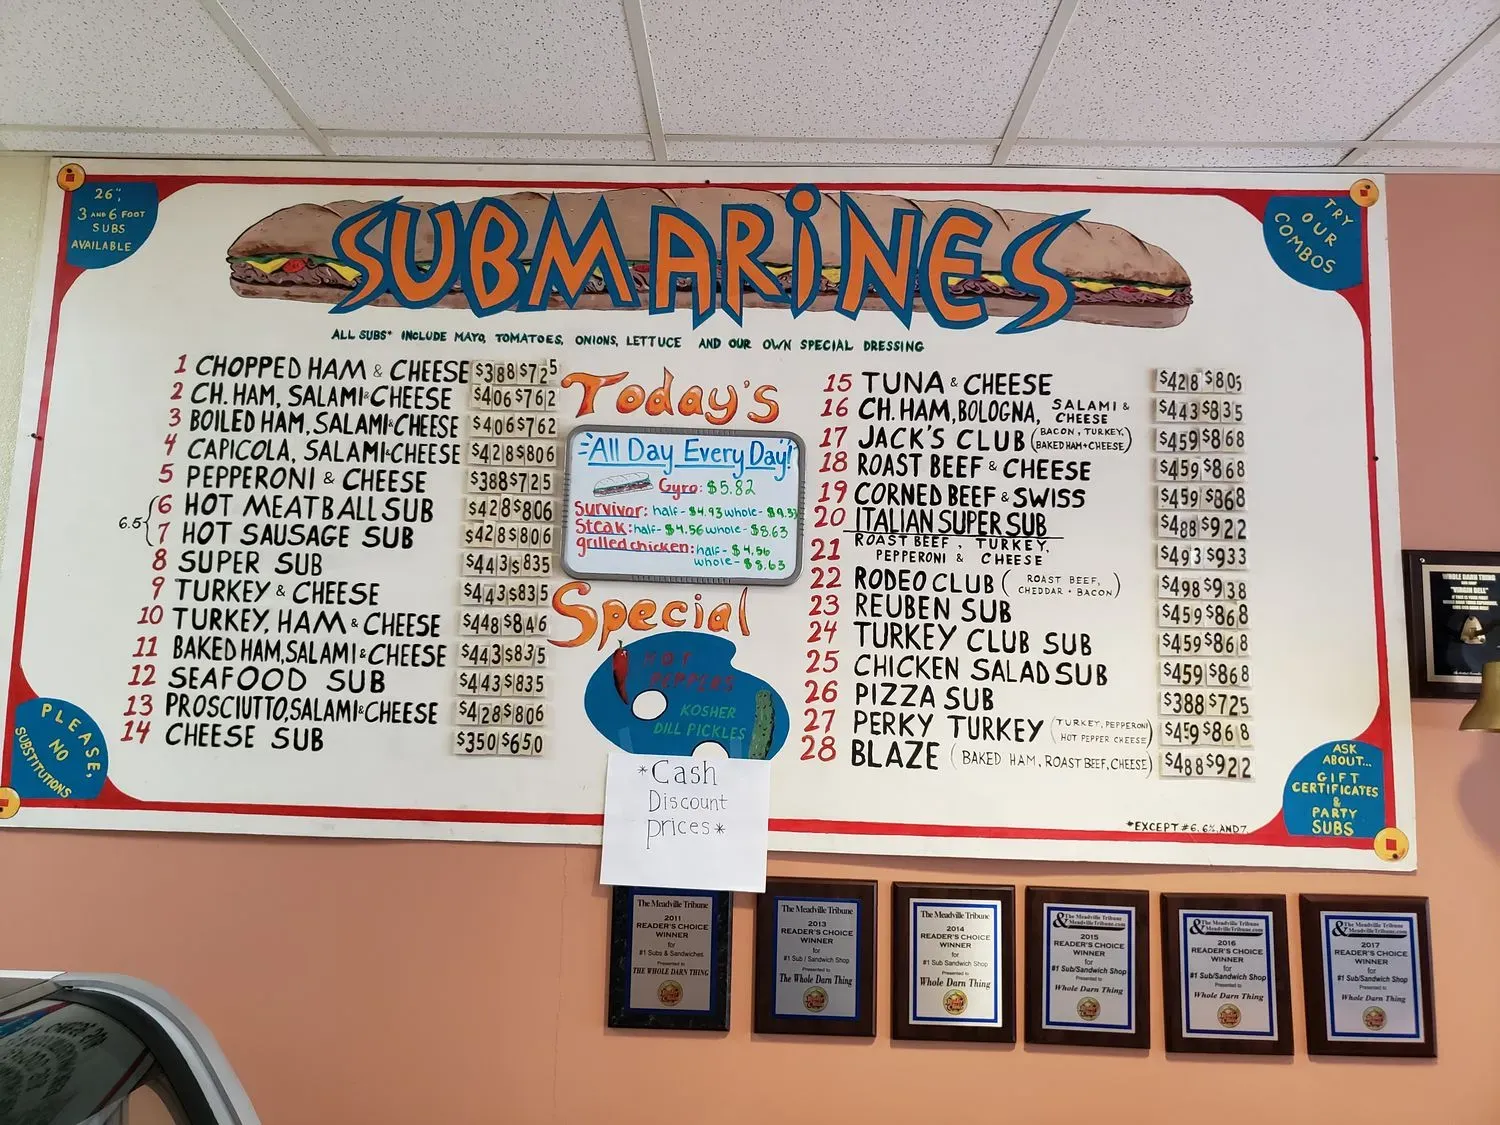 26",
3 AND 6 FOOT
SUBS
AVAILABLE
SUBMARINES
TRY
OUR
COMBOS
ALL SUBS* INCLUDE MAYO, TOMATOES, ONIONS, LETTUCE AND OUR OWN SPECIAL DRESSING
1 CHOPPED HAM & CHEESE $388 $725
2 CH. HAM, SALAMI & CHEESE $406 $762
3 BOILED HAM, SALAMI & CHEESE $406 $762
4 CAPICOLA, SALAMI & CHEESE $428 $806
5 PEPPERONI & CHEESE $388 $725
6 HOT MEATBALL SUB $428 $806
6.5
7 HOT SAUSAGE SUB $428 $806
8 SUPER SUB $443 $835
9 TURKEY & CHEESE $443 $835
10 TURKEY, HAM & CHEESE $448 $846
11 BAKED HAM, SALAMI & CHEESE $443 $835
12 SEAFOOD SUB $443 $835
13 PROSCIUTTO, SALAMI & CHEESE $428 $806
14 CHEESE SUB $350 $650
PLEASE,
NO
SUBSTITUTIONS
Today's
All Day Every Day!
Gyro: $5.82
Survivor: half- $4.93 whole- $9.33
Steak: half- $4.56 whole- $8.63
grilled chicken: half- $4.56
whole- $8.63
Special
HOT
PEPPERS
KOSHER
DILL PICKLES
*Cash
Discount
prices*
15 TUNA & CHEESE $428 $805
16 CH. HAM, BOLOGNA, SALAMI & CHEESE $443 $835
17 JACK'S CLUB (BACON, TURKEY, BAKED HAM + CHEESE) $459 $868
18 ROAST BEEF & CHEESE $459 $868
19 CORNED BEEF & SWISS $459 $868
20 ITALIAN SUPER SUB $488 $922
21 ROAST BEEF, TURKEY, PEPPERONI & CHEESE $493 $933
22 RODEO CLUB (ROAST BEEF, CHEDDAR + BACON) $498 $938
23 REUBEN SUB $459 $868
24 TURKEY CLUB SUB $459 $868
25 CHICKEN SALAD SUB $459 $868
26 PIZZA SUB $388 $725
27 PERKY TURKEY (TURKEY, PEPPERONI HOT PEPPER CHEESE) $459 $868
28 BLAZE (BAKED HAM, ROAST BEEF, CHEESE) $488 $922
*EXCEPT #6, 6½, AND 7
ASK
ABOUT...
GIFT
CERTIFICATES
&
PARTY
SUBS
WHOLE DARN THING
"VIRGIN BELL"
The Meadville Tribune
2011
READER'S CHOICE
WINNER
for
#1 Subs & Sandwiches
Presented to
THE WHOLE DARN THING
The Meadville Tribune
2013
READER'S CHOICE
WINNER
for
#1 Sub / Sandwich Shop
Presented to
The Whole Darn Thing
The Meadville Tribune
2014
READER'S CHOICE
WINNER
for
#1 Sub Sandwich Shop
Presented to
Whole Darn Thing
The Meadville Tribune
& MeadvilleTribune.com
2015
READER'S CHOICE
WINNER
for
#1 Sub/Sandwich Shop
Presented to
Whole Darn Thing
The Meadville Tribune
& MeadvilleTribune.com
2016
READER'S CHOICE
WINNER
for
#1 Sub/Sandwich Shop
Presented to
Whole Darn Thing
The Meadville Tribune
& MeadvilleTribune.com
2017
READER'S CHOICE
WINNER
for
#1 Sub/Sandwich Shop
Presented to
Whole Darn Thing